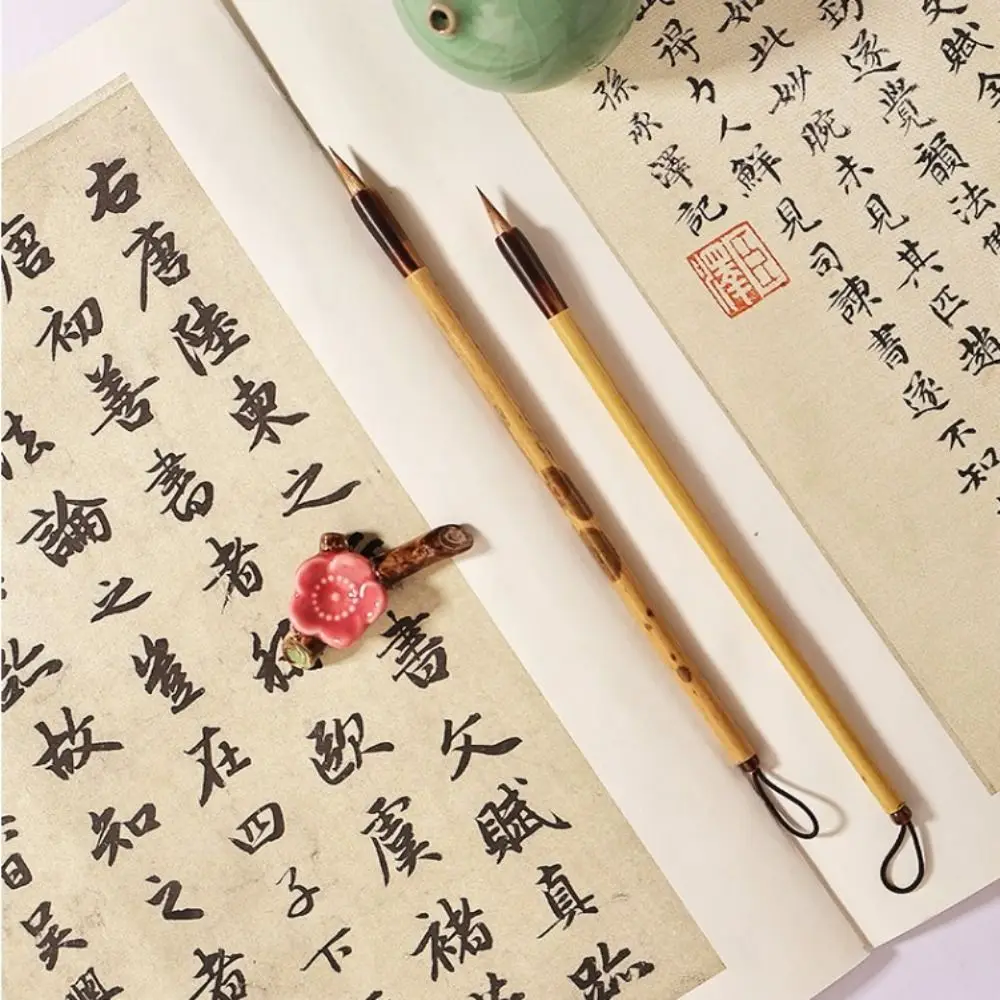 文賦全
勁遂覺韻法
如此妙腕未見其匹趙
得力人鮮見司諫書遂不知
孫承澤記
右唐陸柬之書文賦真蹟
唐初善書者稱歐虞褚
法論之豈在四子下
跡故知之者
吳興